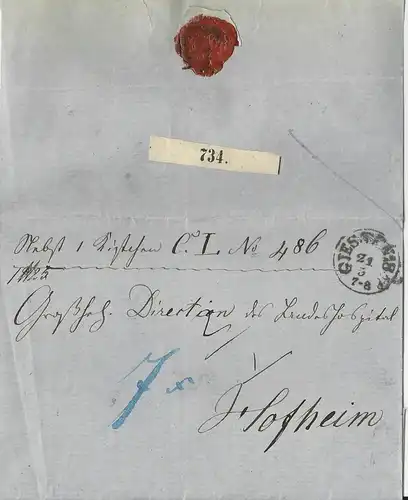 734.
Nebst 1 Kistchen C. I. No 486
GIES
21
3
7-8
Großh. Direction des Landeshospital
7 x
Hofheim